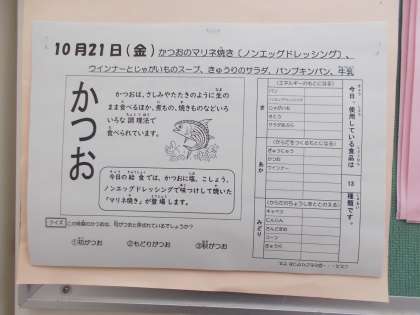 10月21日(金) かつおのマリネ焼き(ノンエッグドレッシング)、
ウインナーとじゃがいものスープ、きゅうりのサラダ、パンプキンパン、牛乳
かつお
かつおは、さしみやたたきのように生の
まま食べるほか、煮もの、焼きものなどいろ
いろな調理法で
食べられています。
今日の給食では、かつおに塩、こしょう、
ノンエッグドレッシングで味つけして焼いた
「マリネ焼き」が登場します。
クイズ この時期のかつおは、何がつおと呼ばれているでしょうか?
①初がつお ②もどりがつお ③秋がつお
今日、使用している食品は
13
種類です。
き
(エネルギーのもとになる)
パン
じゃがいも
さとう
サラダあぶら
あか
(からだをつくるもとになる)
ぎゅうにゅう
かつお
ウインナー
みどり
(からだのちょうしをととのえる)
キャベツ
にんじん
たまねぎ
コーン
きゅうり